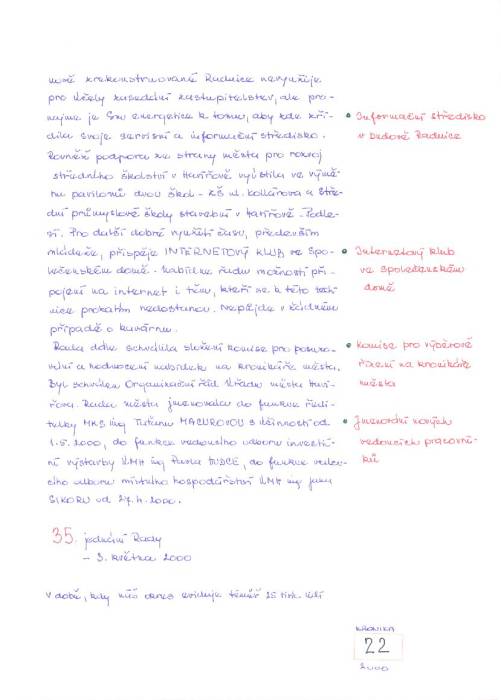 nově zrekonstruované Radnice nevyužije
pro účely zasedání zastupitelstev, ale pro-
najme je Sm energetice k tomu, aby zde zří-
dila svoje servisní a informační středisko.
Rovněž podpora ze strany města pro rozvoj
středního školství v Havířově vyústila ve výmě-
nu pavilonů dvou škol - ZŠ ul. Kollárova a Stře-
dní průmyslové školy stavební v Havířově - Podle-
sí. Pro další dobré využití času, především
mládeže, přispěje INTERNETOVÝ KLUB ve Spo-
lečenském domě. Nabídne řadu možností při-
pojení na internet i těm, kteří se k této tech-
nice prozatím nedostanou. Nepůjde v žádném
případě o kavárnu.
Rada dále schválila složení komise pro posuzo-
vání a hodnocení nabídek na kronikáře města.
Byl schválen Organizační řád Úřadu města Haví-
řova. Rada města jmenovala do funkce ředi-
telky MKS ing. Taťánu MACUROVOU s účinností od
1.5.2000, do funkce vedoucího odboru investi-
ční výstavby ÚMH ing. Pavla, do funkce vedou-
cího odboru místního hospodářství ÚMH ing. Jana
SIKORU od 27.4.2000.
• Informační středisko
v budově Radnice
• Internetový klub
ve Společenském
domě
• Komise pro výběrové
řízení na kronikáře
města
• Jmenování nových
vedoucích pracovní-
ků
35. jednání Rady
- 3. května 2000
V době, kdy náš okres eviduje téměř 25 tis. lidí
KRONIKA
22
2000